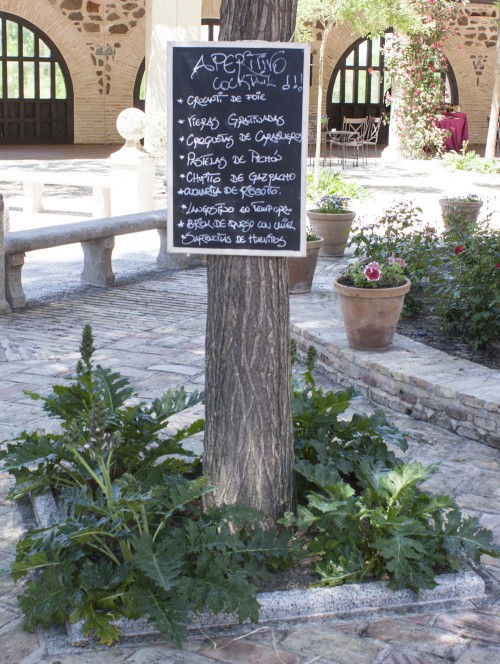 APERITIVO
COCKTAIL !!!
* CROCANTI DE FOIE
* VIEIRAS GRATINADAS
* CROQUETAS DE CARABINEROS
* PASTELAS DE PICHÓN
* CHUPITO DE GAZPACHO
* DE RISSOTO
* LANGOSTINO EN TEMPURA
* BRICK DE QUESO CON
SARTENCITAS DE HUEVITOS